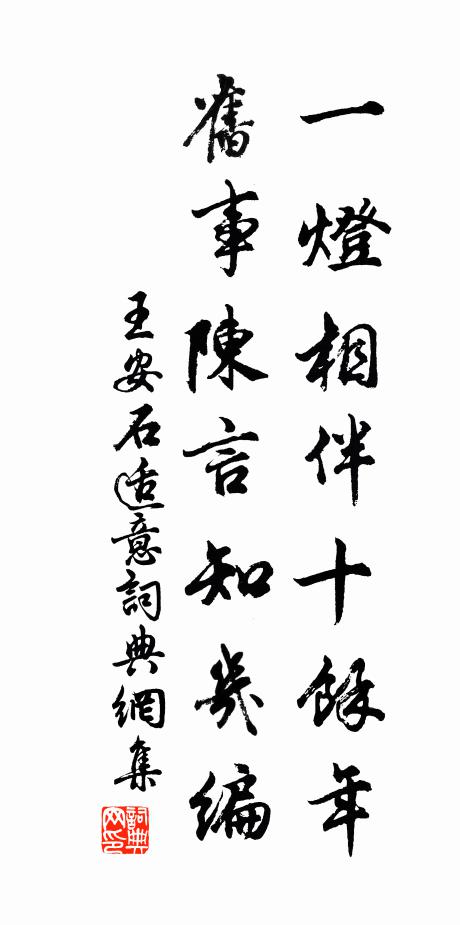 一燈相伴十餘年
舊事陳言知幾編
王安石适意詞典網集
詞典網印